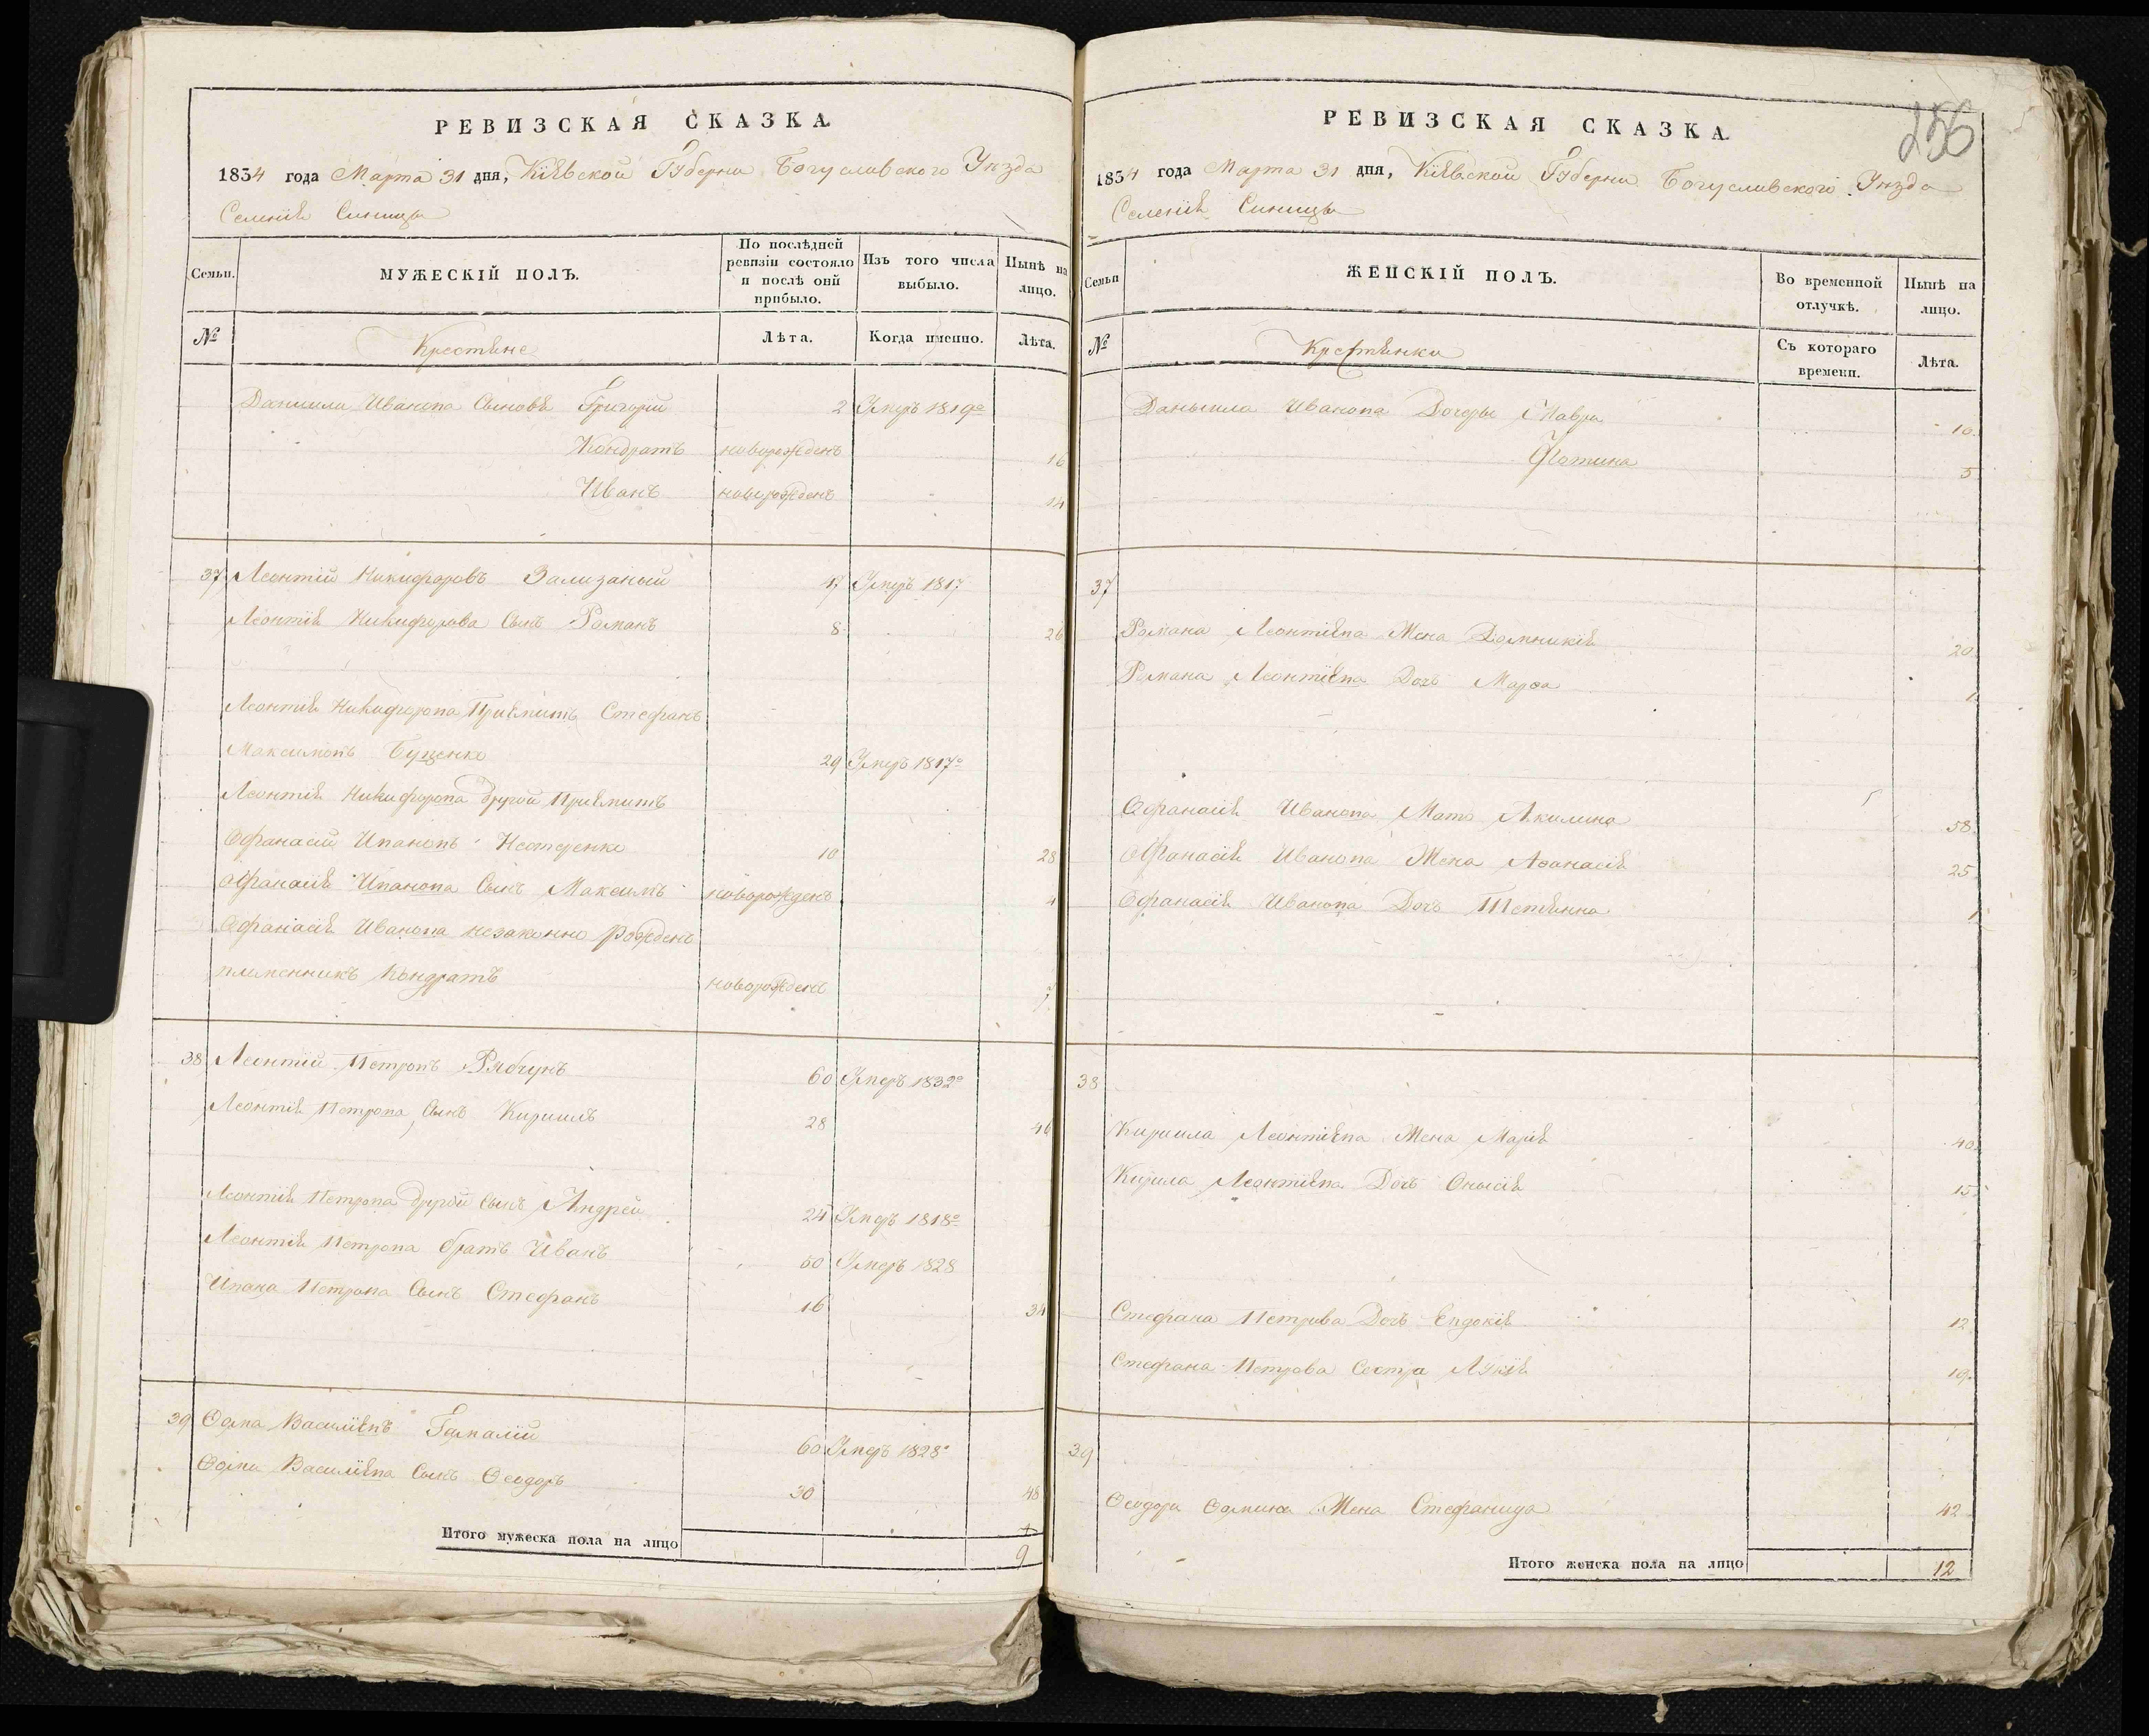 РЕВИЗСКАЯ СКАЗКА
1834 года Марта 31 дня, Кіевской Губерни Богуславского Уѣзда
Селенія Синицы
Семьи.
МУЖЕСКІЙ ПОЛЪ.
По послѣдней ревизіи состояло и послѣ оній прибыло.
Изъ того числа выбыло.
Нынѣ на лицо.
№
Крестяне
Лѣта.
Когда именно.
Лѣта.
Даниила Иванова Сыновя Григорій 2 Умеръ 1819го
Кондратъ новорожденъ 16
Иванъ новорожденъ 14
37 Леонтій Никифоровъ Зализаный 47 Умеръ 1817
Леонтія Никифорова Сынъ Романъ 8 26
Леонтія Никифорова Приемитъ Стефанъ
Максимовъ Буценко 29 Умеръ 1817го
Леонтія Никифорова другой Приемитъ
Офанасій Ивановъ Нестеренко 10 28
Офанасія Иванова Сынъ Максимъ новорожденъ 4
Офанасія Иванова незаконно рожденъ
племенникъ Кондратъ новорожденъ 7
38 Леонтій Петровъ Рябчунъ 60 Умеръ 1832го
Леонтія Петрова Сынъ Кирилъ 28 46
Леонтія Петрова другой сынъ Андрей 24 Умеръ 1818го
Леонтія Петрова братъ Иванъ 50 Умеръ 1828
Ивана Петрова Сынъ Стефанъ 16 34
39 Ѳома Василіевъ Гамалій 60 Умеръ 1828го
Ѳомы Василіева Сынъ Ѳеодоръ 30 48
Итого мужеска пола на лицо 9
256
РЕВИЗСКАЯ СКАЗКА
1834 года Марта 31 дня, Кіевской Губерни Богуславского Уѣзда
Селенія Синицы
Семьи
ЖЕНСКІЙ ПОЛЪ.
Во временной отлучкѣ.
Нынѣ на лицо.
№
Крестянки
Съ котораго времени.
Лѣта.
Даныила Иванова Дочеры Мавра 10
Фотина 5
37
Романа Леонтіева Жена Домникія 20
Романа Леонтіева Дочъ Марѳа 1
Офанасія Иванова Мать Акилина 58
Офанасія Иванова Жена Аѳанасія 25
Офанасія Иванова Дочъ Тетянна 1
38
Кирила Леонтіева Жена Марія 40
Кирила Леонтіева Дочъ Онысія 15
Стефана Петрова Дочъ Евдокія 12
Стефана Петрова Сестра Лукія 19
39
Ѳеодора Ѳомина Жена Стефанида 42
Итого женска пола на лицо 12